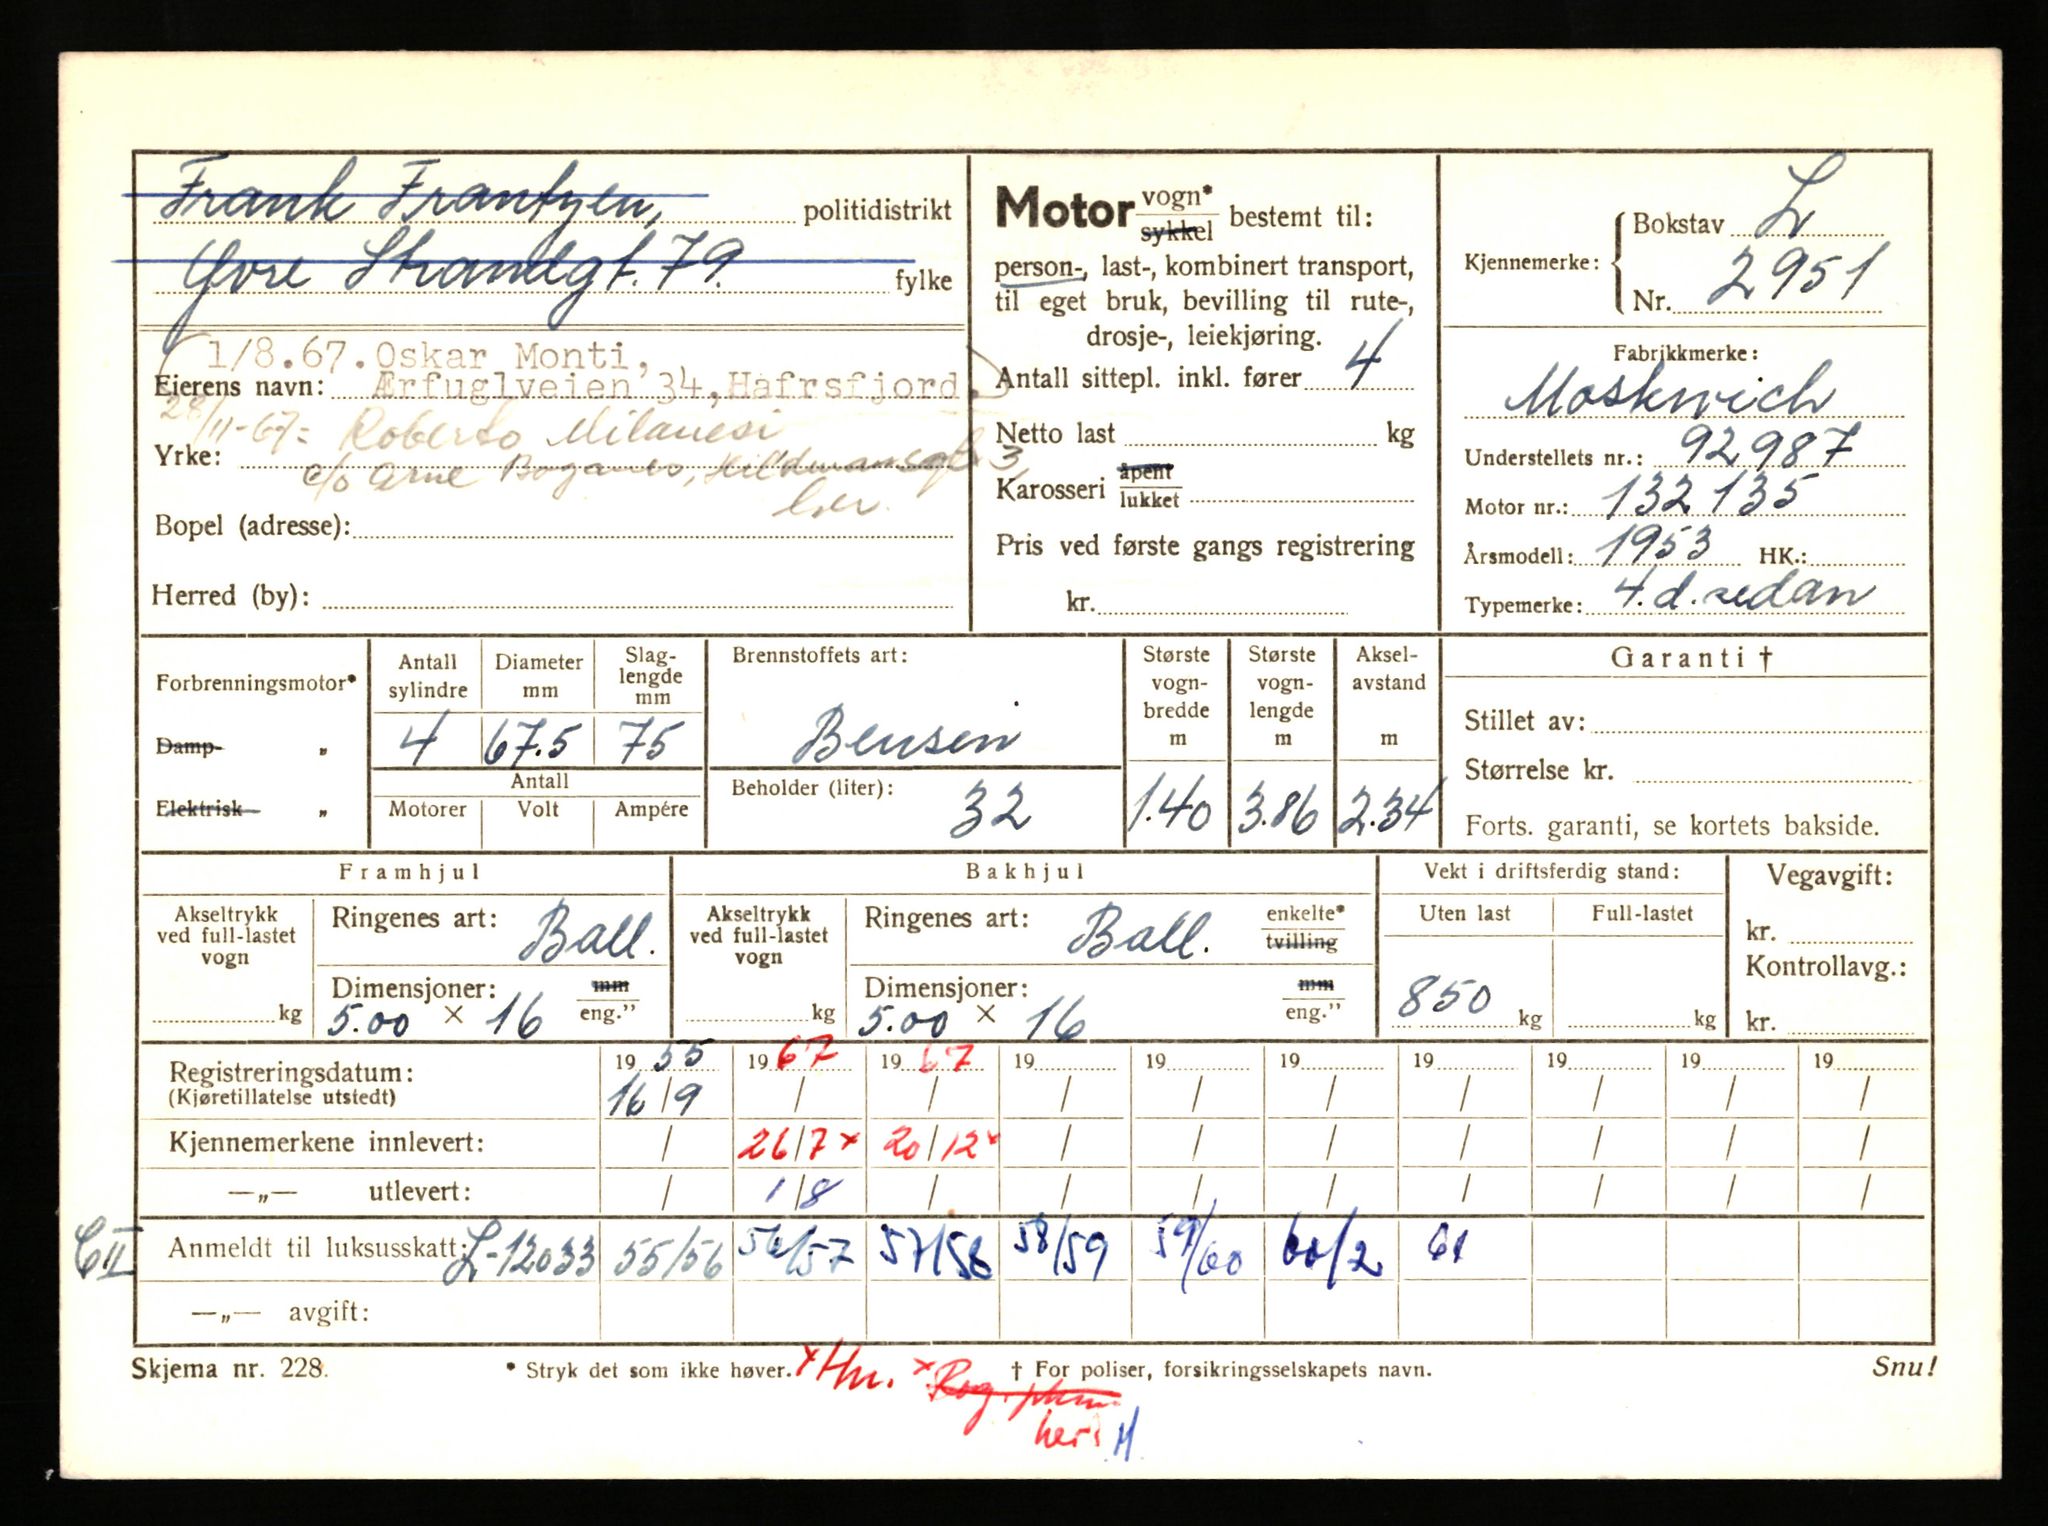 Frank Frantzen, politidistrikt
Øvre Strandgt. 79. fylke
1/8.67. Oskar Monti,
Eierens navn: Ærfuglveien 34, Hafrsfjord.
28/11-67: Roberto Milanesi
Yrke: c/o Arne Boganes, Hildmansgt. 3,
her.
Bopel (adresse):
Herred (by):
Motor vogn* sykkel bestemt til:
person-, last-, kombinert transport,
til eget bruk, bevilling til rute-,
drosje-, leiekjøring.
Antall sittepl. inkl. fører 4
Netto last kg
Karosseri åpent lukket
Pris ved første gangs registrering
kr.
Kjennemerke: Bokstav L
Nr. 2951
Fabrikkmerke:
Moskwich
Understellets nr.: 92987
Motor nr.: 132135
Årsmodell: 1953 HK.:
Typemerke: 4.d.sedan
Forbrenningsmotor*
Damp- „
Elektrisk- „
Antall sylindre Diameter mm Slag-lengde mm
4 67.5 75
Antall
Motorer Volt Ampére
Brennstoffets art:
Bensin
Beholder (liter): 32
Største vogn-bredde m 1.40
Største vogn-lengde m 3.86
Aksel-avstand m 2.34
Garanti †
Stillet av:
Størrelse kr.
Forts. garanti, se kortets bakside.
Framhjul
Akseltrykk ved full-lastet vogn kg
Ringenes art: Ball.
Dimensjoner: mm
5.00 × 16 eng."
Bakhjul
Akseltrykk ved full-lastet vogn kg
Ringenes art: Ball. enkelte* tvilling
Dimensjoner: mm
5.00 × 16 eng."
Vekt i driftsferdig stand:
Uten last Full-lastet
850 kg kg
Vegavgift:
kr.
Kontrollavg.:
kr.
Registreringsdatum: 19 55 19 67 19 67 19 19 19 19 19 19 19
(Kjøretillatelse utstedt) 16/9 / / / / / / / / /
Kjennemerkene innlevert: / 26/7 x 20/12 x / / / / / / /
—„— utlevert: / 1/8 / / / / / / / /
C II Anmeldt til luksusskatt: L-12033 55/56 56/57 57/58 58/59 59/60 60/2 61
—„— avgift:
Skjema nr. 228. * Stryk det som ikke høver. † For poliser, forsikringsselskapets navn. Snu!
her